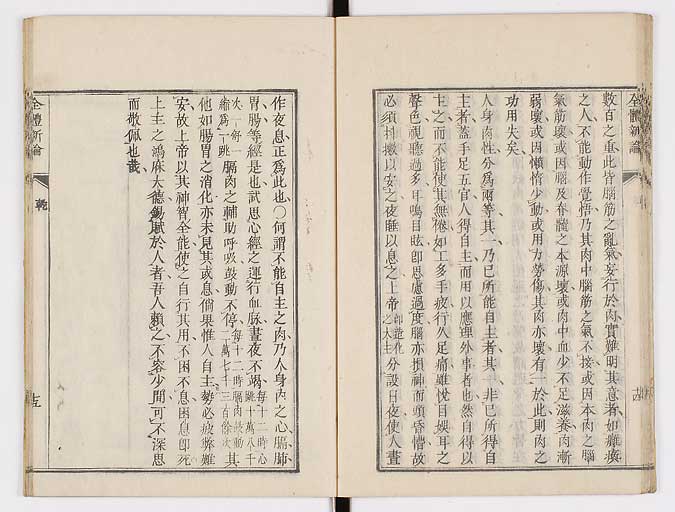 全體新論
數百之重此皆腦筋之亂氣妄行於肉實難明其意者如癱瘓
之人不能動作覺悟乃其肉中腦筋之氣不接或因本肉之腦
氣筋壞或因腦及脊髓之本源壞或肉中血少不足滋養肉漸
弱壞或因懶惰少動或用力勞傷其肉亦壞有一於此則肉之
功用失矣
人身肉性分爲兩等其一乃已所能自主者其一非已所得自
主者蓋手足五官人得自主而用以應理外事者也然自得以
主之而不能使其無倦如工多手疲行久足痛雖悅目娛耳之
聲色視聽過多耳鳴目眩卽思慮過度腦亦損神而頭昏懵故
必須抖擻以安之夜睡以息之上帝卽造化之大主分設日夜使人晝
十四
作夜息正爲此也○何謂不能自主之肉乃人身內之心膈肺
胃腸等經是也試思心經之運行血脈晝夜不竭每十二時心跳十萬八千
次一舒一縮爲一跳膈肉之輔助呼吸鼓動不停每十二時膈肉鼓動二萬七千三百餘次其
他如腸胃之消化亦未見其或息倘果惟人自主勢必疲弊難
安故上帝以其神智全能使之自行其用不困不息困息卽死
上主之鴻庥大德錫賦於人者吾人賴之不容少間可不深思
而敬佩也哉
全體新論
乾
十五